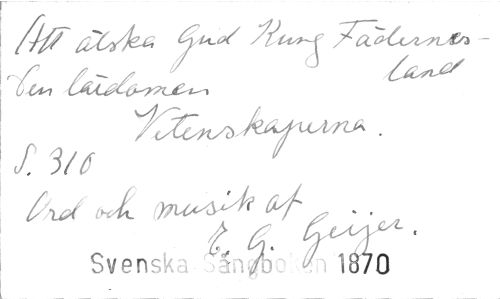 Att älska Gud Kung Fädernes-
land
den lärdomen
Vitenskaperna.
S. 310
Ord och musik af
E. G. Geijer.
Svenska Sångboken 1870